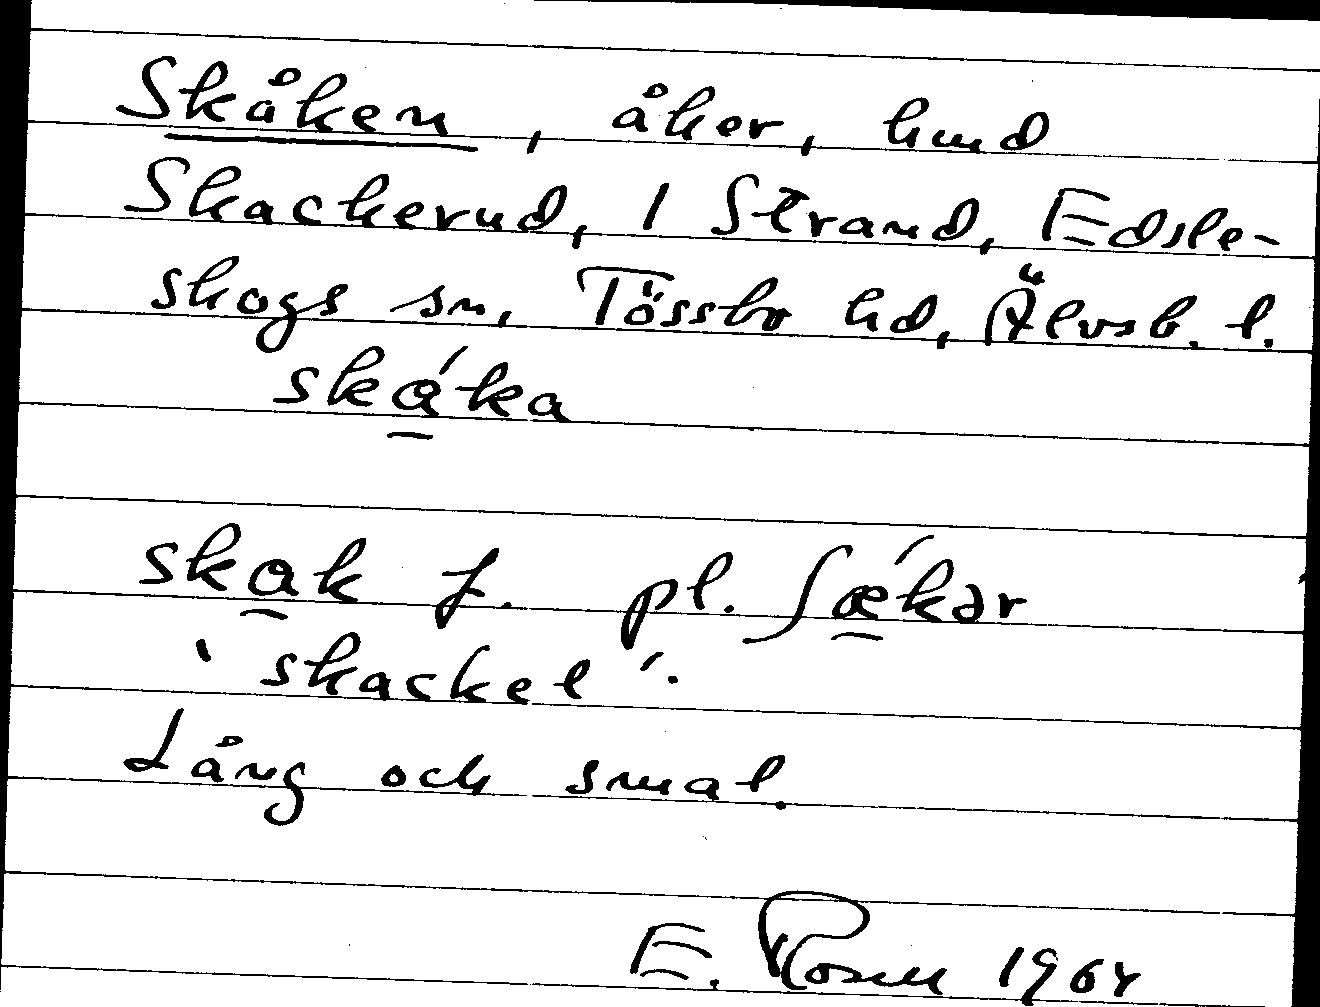 Skåken, åker, hmd
Skackerud, 1 Strand, Edsle-
skogs sn, Tössbo hd, Älvsb. l.
ská̲ka
ska̲k f. pl. ʃǽ̲kər
'skackel'.
Lång och smal.
E. Rosell 1964